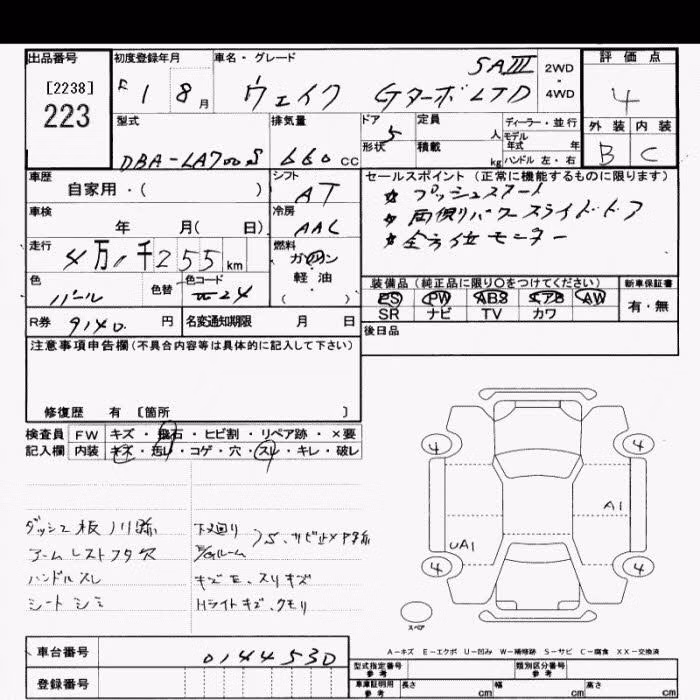 出品番号 初度登録年月 車名・グレード 評価点
[2238] SAⅢ 2WD
223 1 8月 ウェイク GターボLTD ・4WD 4
型式 排気量 ドア 5 定員 人 ディーラー・並行 外装 内装
形状 積載 kg モデル年式 年
DBA-LA700S 660 cc ハンドル 左・右 B C
車歴 シフト セールスポイント(正常に機能するものに限ります)
自家用・( ) AT ☆プッシュスタート
車検 冷房 ☆両側パワースライドドア
年 月( 日) AAC ☆全方位モニター
走行 燃料
4万1千255km ガソリン
色 色替 色コード 軽油 装備品(純正品に限り○をつけてください) 新車保証書
パール 24 ( ) PS PW ABS エアB AW 有・無
R券 9140円 名変通知期限 月 日 SR ナビ TV カワ
注意事項申告欄(不具合内容等は具体的に記入して下さい) 後日品
修復歴 有 [箇所 ]
検査員 FW キズ・飛石・ヒビ割・リペア跡・×要
記入欄 内装 キズ・汚レ・コゲ・穴・スレ・キレ・破レ
4 4
A1
UA1
4 4
ダッシュ板 下廻り
アームレストフタ穴 ルーム
ハンドルスレ キズ スリキズ
シートシミ Hライトキズ、クモリ
スペア
A-キズ E-エクボ U-凹み W-補修跡 S-サビ C-腐食 XX-交換済
車台番号 0144530
登録番号
型式指定番号 参考 類別区分番号 参考
車庫証明用 参考 長さ cm 幅 cm 高さ cm